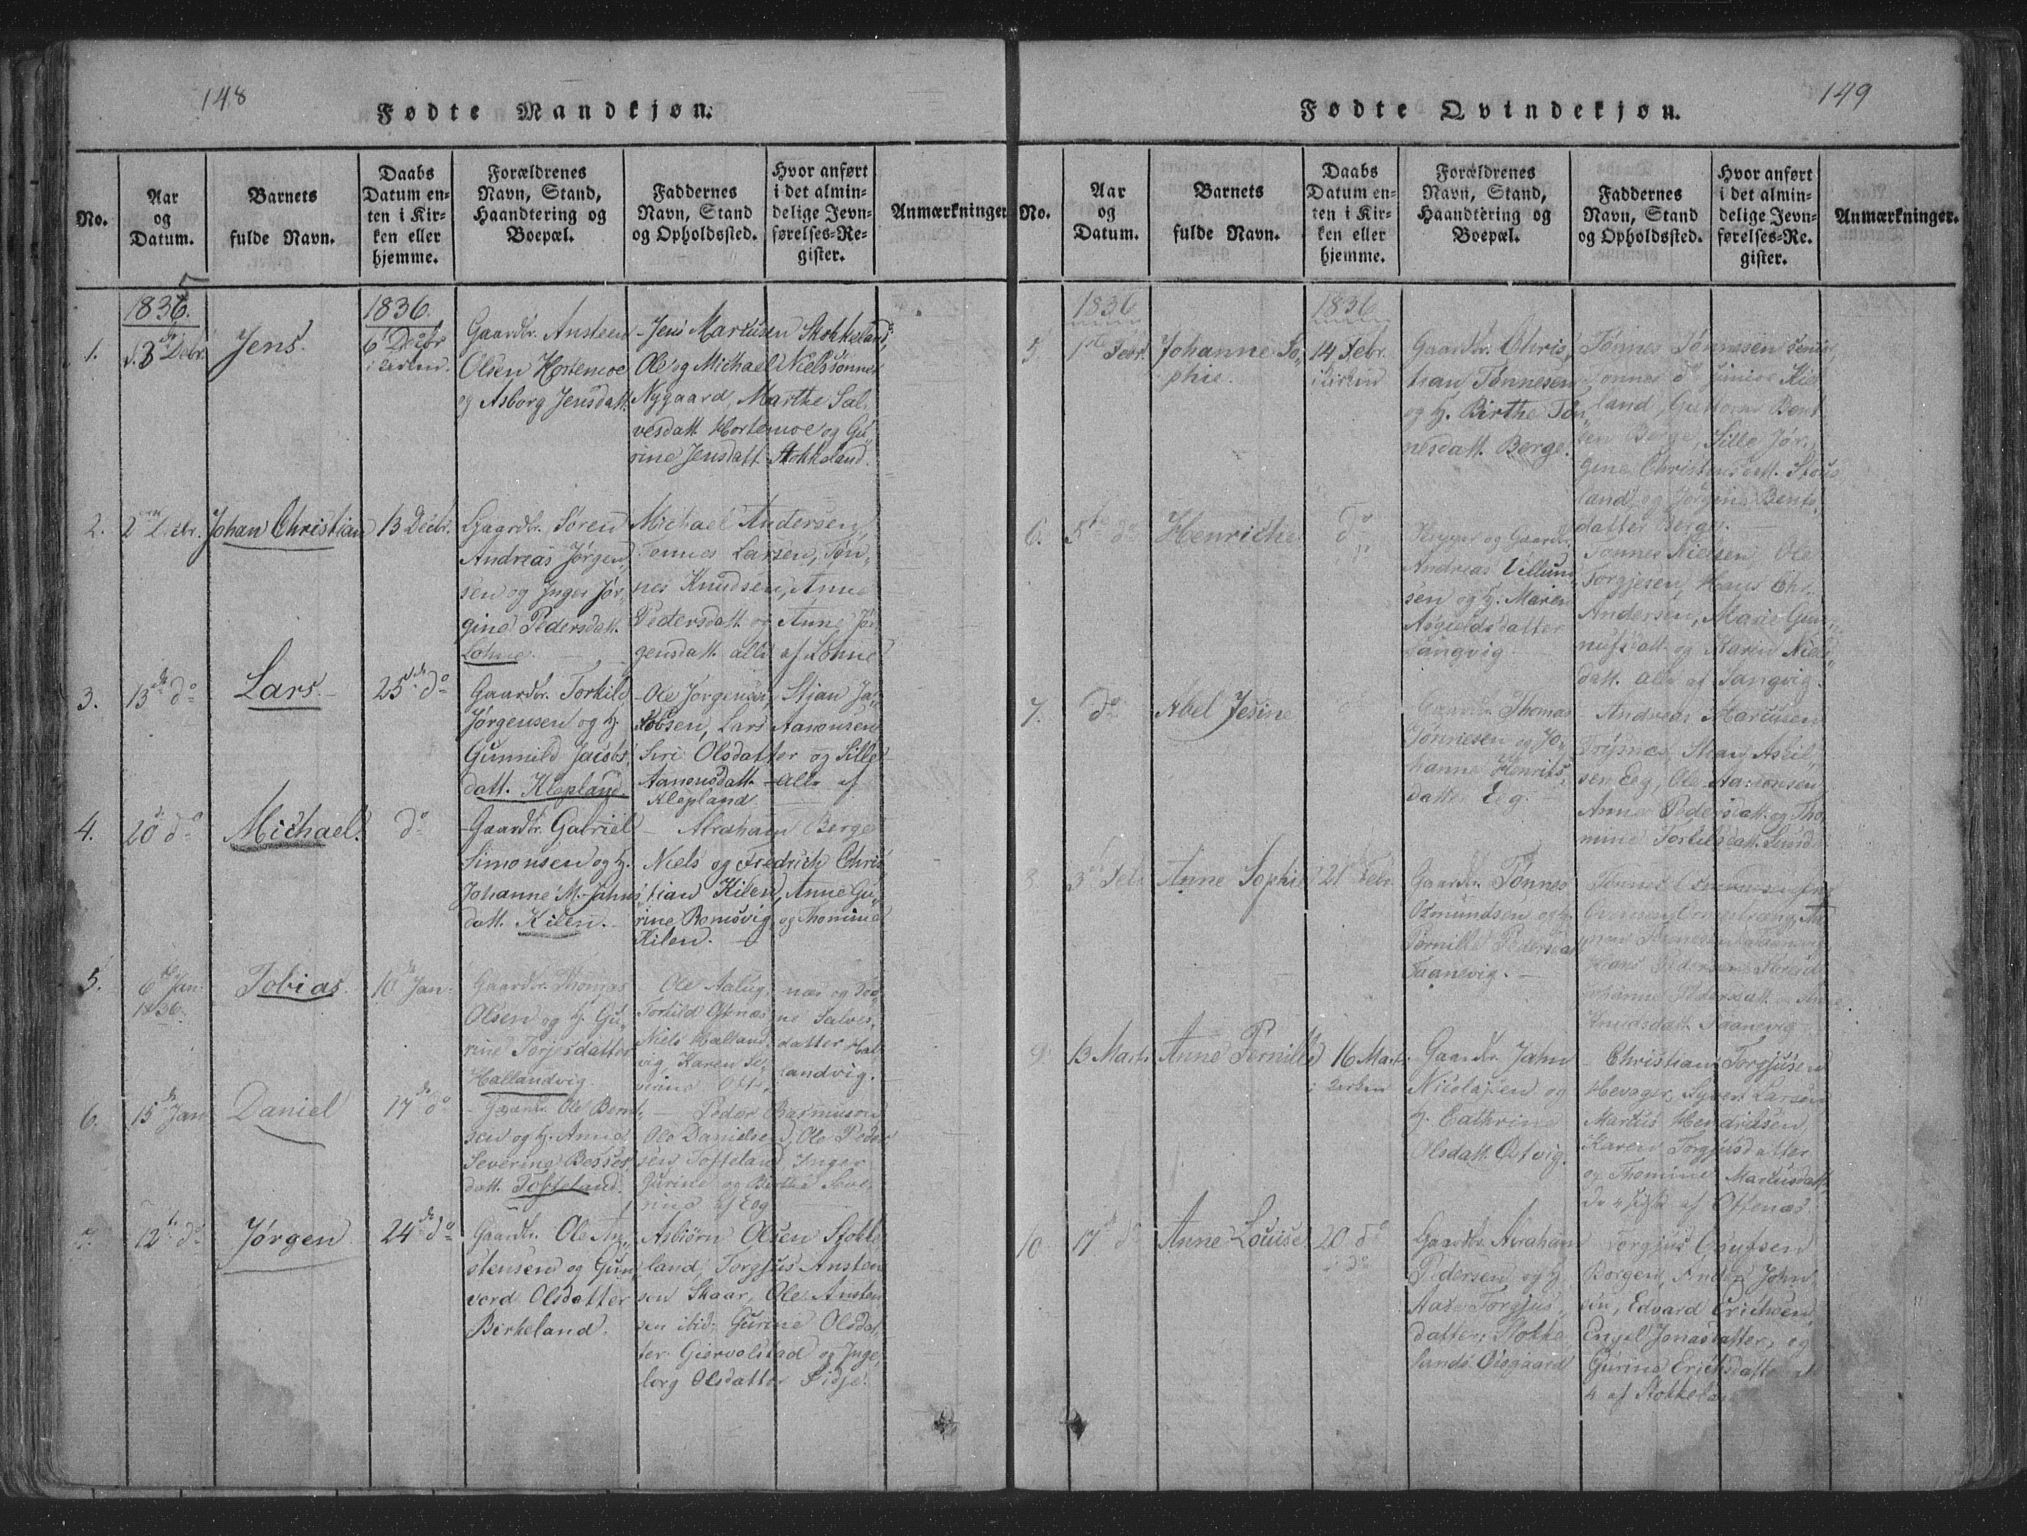 148
Fødte Mandkjøn.
No.
Aar
og
Datum.
Barnets
fulde Navn.
Daabs
Datum en-
ten i Kir-
ken eller
hjemme.
Forældrenes
Navn, Stand,
Haandtering og
Boepæl.
Faddernes
Navn, Stand
og Opholdssted.
Hvor anført
i det almin-
delige Jevn-
førelses-Re-
gister.
Anmærkninger.
1.
1836.
Debr.
Jens.
1836.
6 Decbr
Gaardbr. Ansteen
Olsen Hortemoe
og Asborg Jensdatt.
Jens Marcusen Stokkeland,
Ole og Michael Nielssønner
Nygaard, Marthe Sal-
vesdatt. Hortemoe og Gu-
rine Jensdatt. Stokkeland.
2.
2 Debr.
Johan Christian
13 Decbr.
Gaardbr. Søren
Andreas Jørgen-
sen og Inger Jør-
gine Pedersdatt.
Lohne.
Michael Andersen,
Tønnes Larsen, Tøn-
nes Knudsen, Anne
Pedersdatt. og Anne Jør-
gensdatt. alle af Lohne
3.
13 do
Lars.
25 do
Gaardbr. Torkild
Jørgensen og H.
Gunnild Jacobs-
datt. Klepland.
Ole Jørgensen, Stian Ja-
kobsen, Lars Aanonsen
Siri Olsdatter og Sille
Aanonsdatt. alle af
Klepland.
4.
20 do
Michael.
do
Gaardbr. Gabriel
Simonsen og H.
Johanne M. Jahns-
datt. Kilen.
Abraham Berge
Niels og Fredrich Chris-
tian Kilen, Anne Gu-
rine Romsvig og Thomine
Kilen.
5.
6 Jan.
1836.
Tobias.
10 Jan.
Gaardbr. Thomas
Olsen og H. Gu-
rine Torjesdatter
Hallandvig.
Ole
Torkild Oftnæs
Niels Halland-
vig, Karen Se-
verine
ne Salves-
datter Hal-
landvig.
6.
15 Jan
Daniel
17 do
Gaardbr. Ole Bernt-
sen og H. Anne
Severine Besses-
datt. Tofteland.
Peder Rasmusen
Ole Danielsen, Ole Peder-
sen Tofteland, Inger
Gurine og Birthe Seve-
rine af Eeg
7.
12 do
Jørgen
24 do
Gaardbr. Ole An-
stensen og Gun-
vord Olsdatter
Birkeland.
Asbiørn Olsen Stokke-
land, Torgjus Ansten-
sen Skaar, Ole Ansten-
sen ibid: Gurine Olsdat-
ter Giervolstad og Inge-
borg Olsdatter Sidje.
149
Fødte Qvindekjøn.
No.
Aar
og
Datum.
Barnets
fulde Navn.
Daabs
Datum en-
ten i Kir-
ken eller
hjemme.
Forældrenes
Navn, Stand,
Haandtering og
Boepæl.
Faddernes
Navn, Stand
og Opholdssted.
Hvor anført
i det almin-
delige Jevn-
førelses-Re-
gister.
Anmærkninger.
5.
1836
1 Febr.
Johanne So-
phie.
1836
14 Febr.
i Kirken
Gaardbr. Chris-
tian Tønnesen
og H. Birthe Tøn-
nesdatt. Berge.
Tønnes Tønnesen senior
Tønnes do junior
land, Bent-
sen Berge, Sille Jør-
gine Christensdatt.
land og Jørgine Bents-
datter Berge.
6.
5 do
Henriche
do
og Gaardbr.
Andreas Villum-
sen og H. Maren
Asgieldsdatter
Langvig.
Tønnes Nielsen, Ole
Torgjesen, Hans Chr.
Andersen, Marie Gun-
datt. og Karen Niels-
datt. alle af Langvig.
7.
do
Abel Jesine
Gaardbr. Thomas
Tønnesen og Jo-
hanne Henriks-
datter Eeg.
Andreas Marcusen
Stian Askil-
sen Eeg, Ole Aanonsen
Anne Pedersdatt. og Tho-
mine Torkilsdatt.
8.
3 Febr
Anne Sophie
21 Febr.
Gaardbr. Tønnes
Osmundsen og H.
Pernille Pedersdat
Faanevig.
Hans Pedersen
Johanne Pedersdatt. og Anne
Knudsdatt. Faanevig.
9.
13 Marts
Anne Pernille
16 Marts
i Kirken
Gaardbr. Jahn
Nicolaisen og
H. Cathrine
Olsdatt. Østvig.
Christian Torgjusen
Hevager, Syvert Larsen
Marcus Hendriksen,
Karen Torgjusdatter
og Thomine Marcusdatt.
af Oftenæs.
10.
17 do
Anne Louise
20 do
i do
Gaardbr. Abraham
Pedersen og H.
Aase Torgjus-
datter Stokke-
lands Øigaard
Torgjus
Borgen, Anders John-
sen, Edvard Erichsen
Engel Jonasdatter, og
Gurine Ericksdatter
4 af Stokkeland